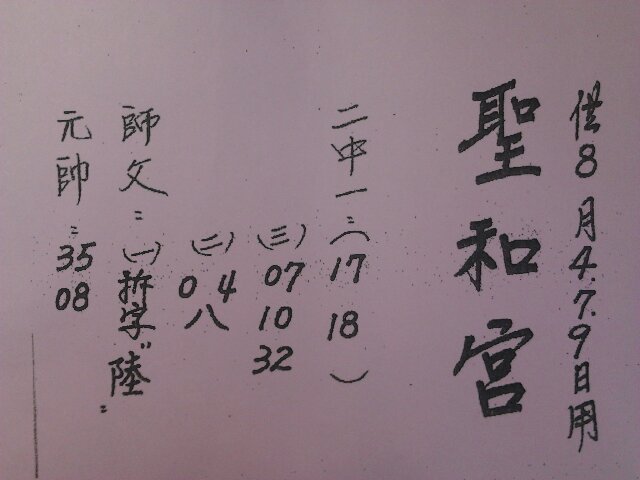 供8月4.7.9日用
聖和宮
二中一:(17 18)
(三) 07 10 32
(二) 04 八
師文:(一)拆字"陸"
元帥:35 08